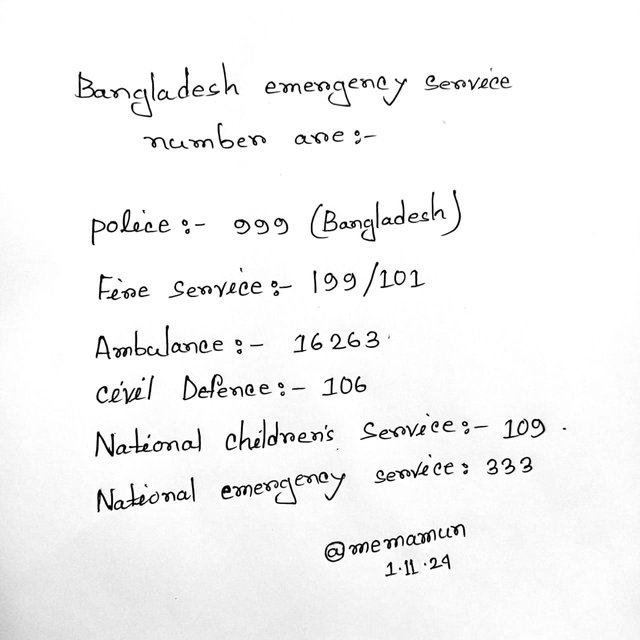 Bangladesh emergency service
number are:-
police:- 999 (Bangladesh)
Fire service:- 199/101
Ambulance:- 16263.
civil Defence:- 106
National children's Service:- 109.
National emergency service: 333
@memamun
1.11.24